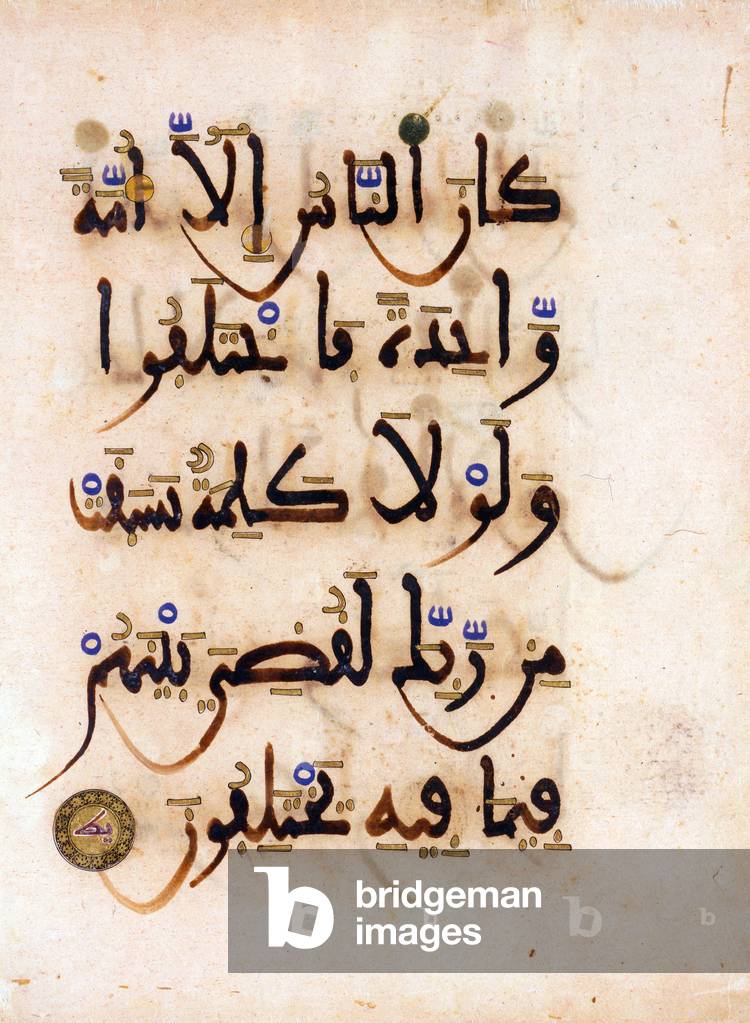 كَانَ اَلنَّاسُ إِلَّا أُمَّةً
وَّاحِدَةً فَاخْتَلَفُوا
وَلَوْلَا كَلِمَةٌ سَبَقَتْ
مِن رَّبِّكَ لَقُضِيَ بَيْنَهُمْ
فِيمَا فِيهِ يَخْتَلِفُونَ
b bridgeman
images
b
b